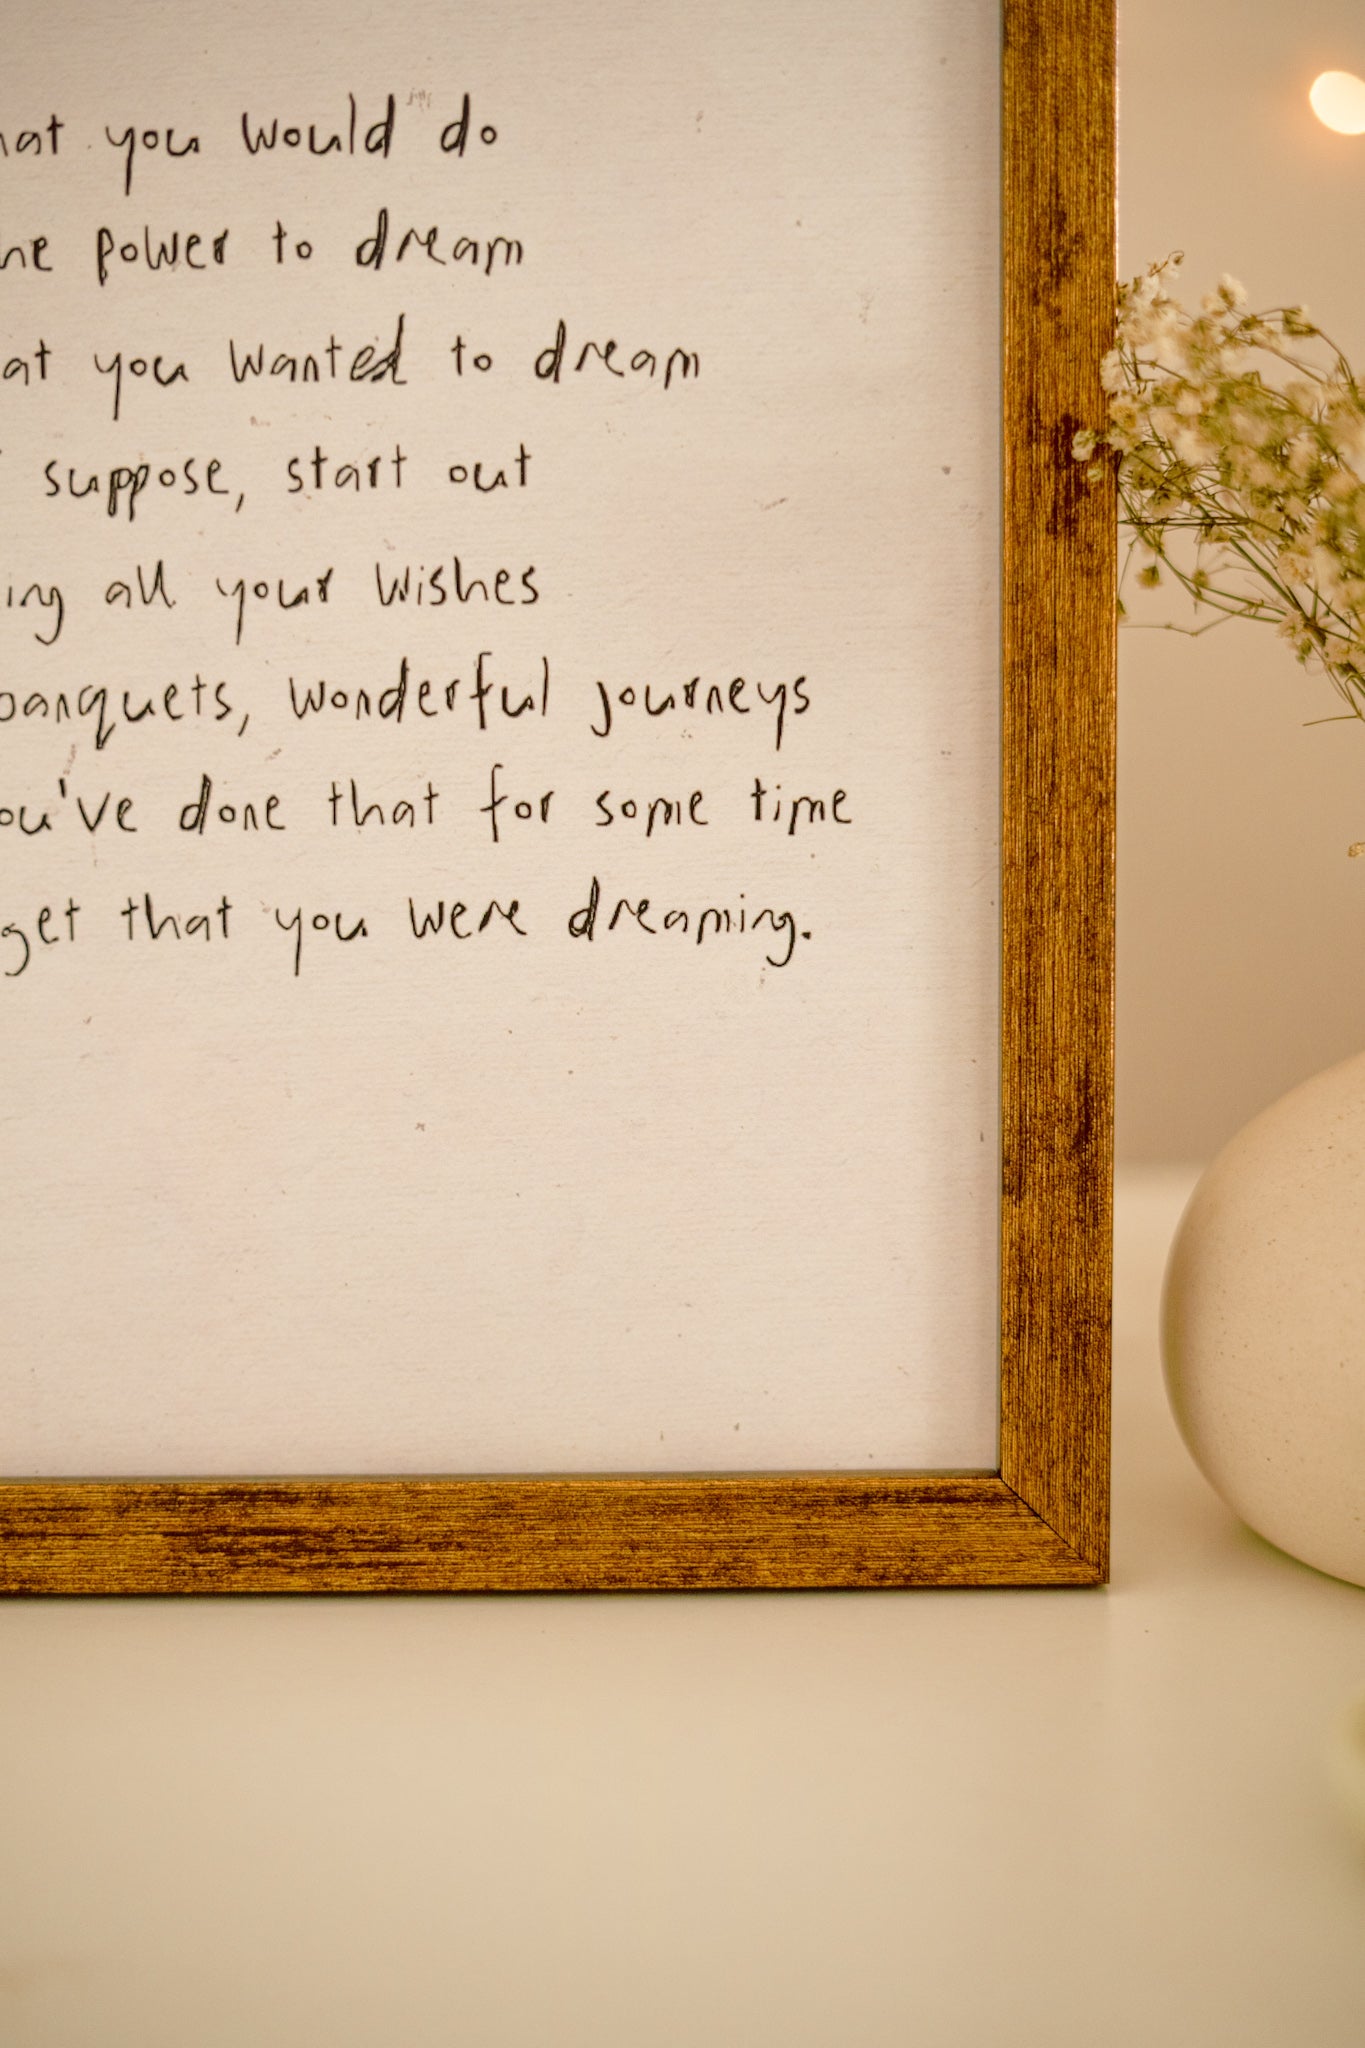 hat you would do
he power to dream
at you wanted to dream
suppose, start out
ing all your wishes
banquets, wonderful journeys
ou've done that for some time
get that you were dreaming.